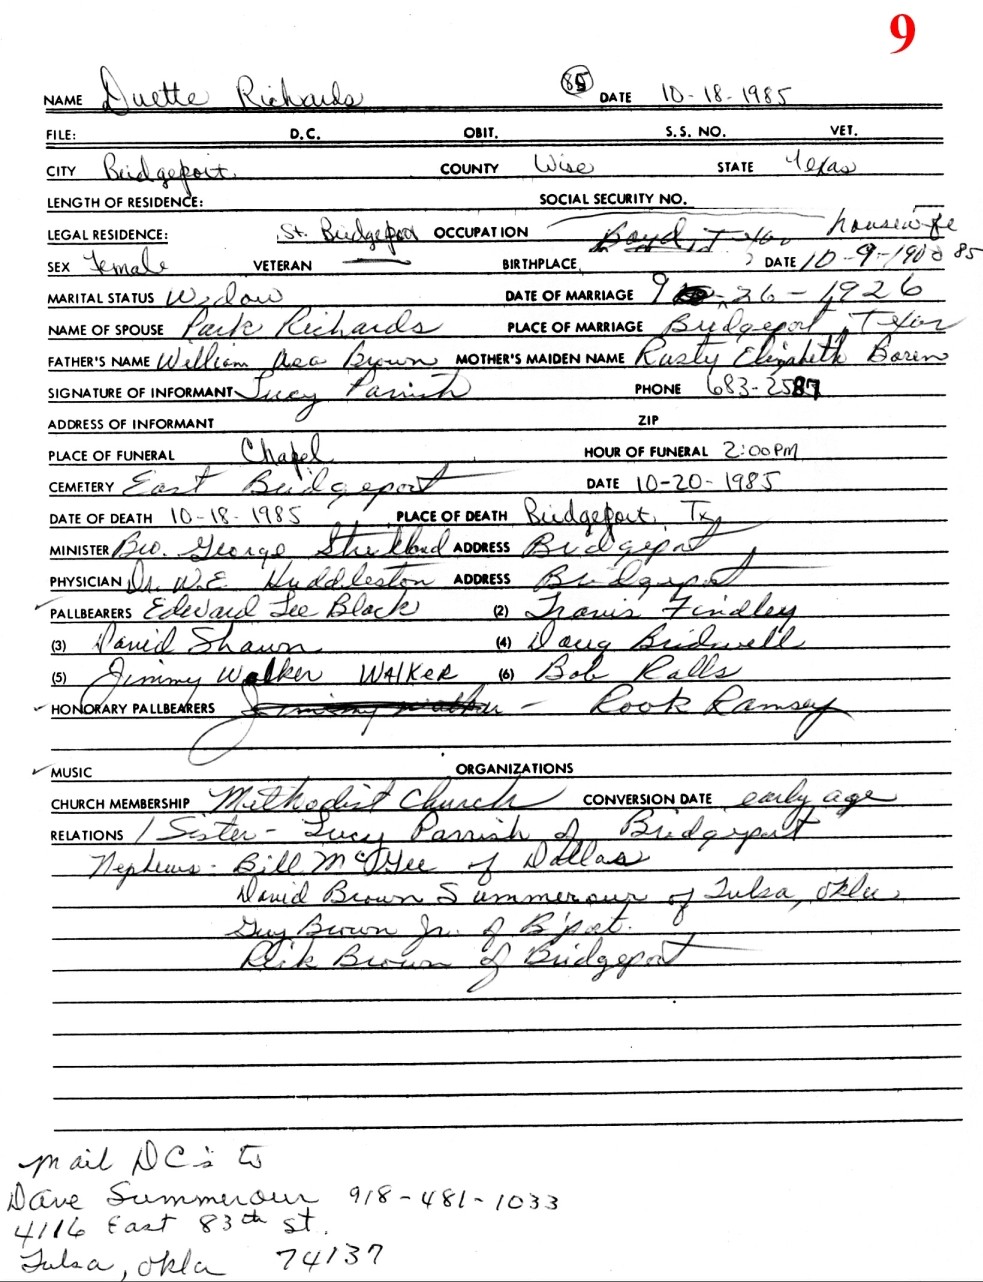 9
NAME Duette Richards 85 DATE 10-18-1985
FILE: D.C. OBIT. S.S. NO. VET.
CITY Bridgeport COUNTY Wise STATE Texas
LENGTH OF RESIDENCE: SOCIAL SECURITY NO.
LEGAL RESIDENCE: St. Bridgeport OCCUPATION housewife
SEX Female VETERAN BIRTHPLACE Boyd, Texas DATE 10-9-1900 85
MARITAL STATUS Widow DATE OF MARRIAGE 9-26-1926
NAME OF SPOUSE Park Richards PLACE OF MARRIAGE Bridgeport, Texas
FATHER'S NAME William Asa Brown MOTHER'S MAIDEN NAME Rusty Elizabeth Boren
SIGNATURE OF INFORMANT Lucy Parrish PHONE 683-2587
ADDRESS OF INFORMANT ZIP
PLACE OF FUNERAL Chapel HOUR OF FUNERAL 2:00 PM
CEMETERY East Bridgeport DATE 10-20-1985
DATE OF DEATH 10-18-1985 PLACE OF DEATH Bridgeport, Tx
MINISTER Bro. George Strickland ADDRESS Bridgeport
PHYSICIAN Dr. W.E. Huddleston ADDRESS Bridgeport
PALLBEARERS Edward Lee Black (2) Travis Findley
(3) David Shawn (4) Doug Bridwell
(5) Jimmy Walker WALKER (6) Bob Ralls
HONORARY PALLBEARERS Jimmy Walker - Rook Ramsey
MUSIC ORGANIZATIONS
CHURCH MEMBERSHIP Methodist Church CONVERSION DATE early age
RELATIONS 1 Sister - Lucy Parrish of Bridgeport
Nephews - Bill McGee of Dallas
David Brown Summerour of Tulsa, Okla
Guy Brown Jr. of B'port.
Dick Brown of Bridgeport
mail DC's to
Dave Summerour 918-481-1033
4116 East 83th St.
Tulsa, Okla 74137